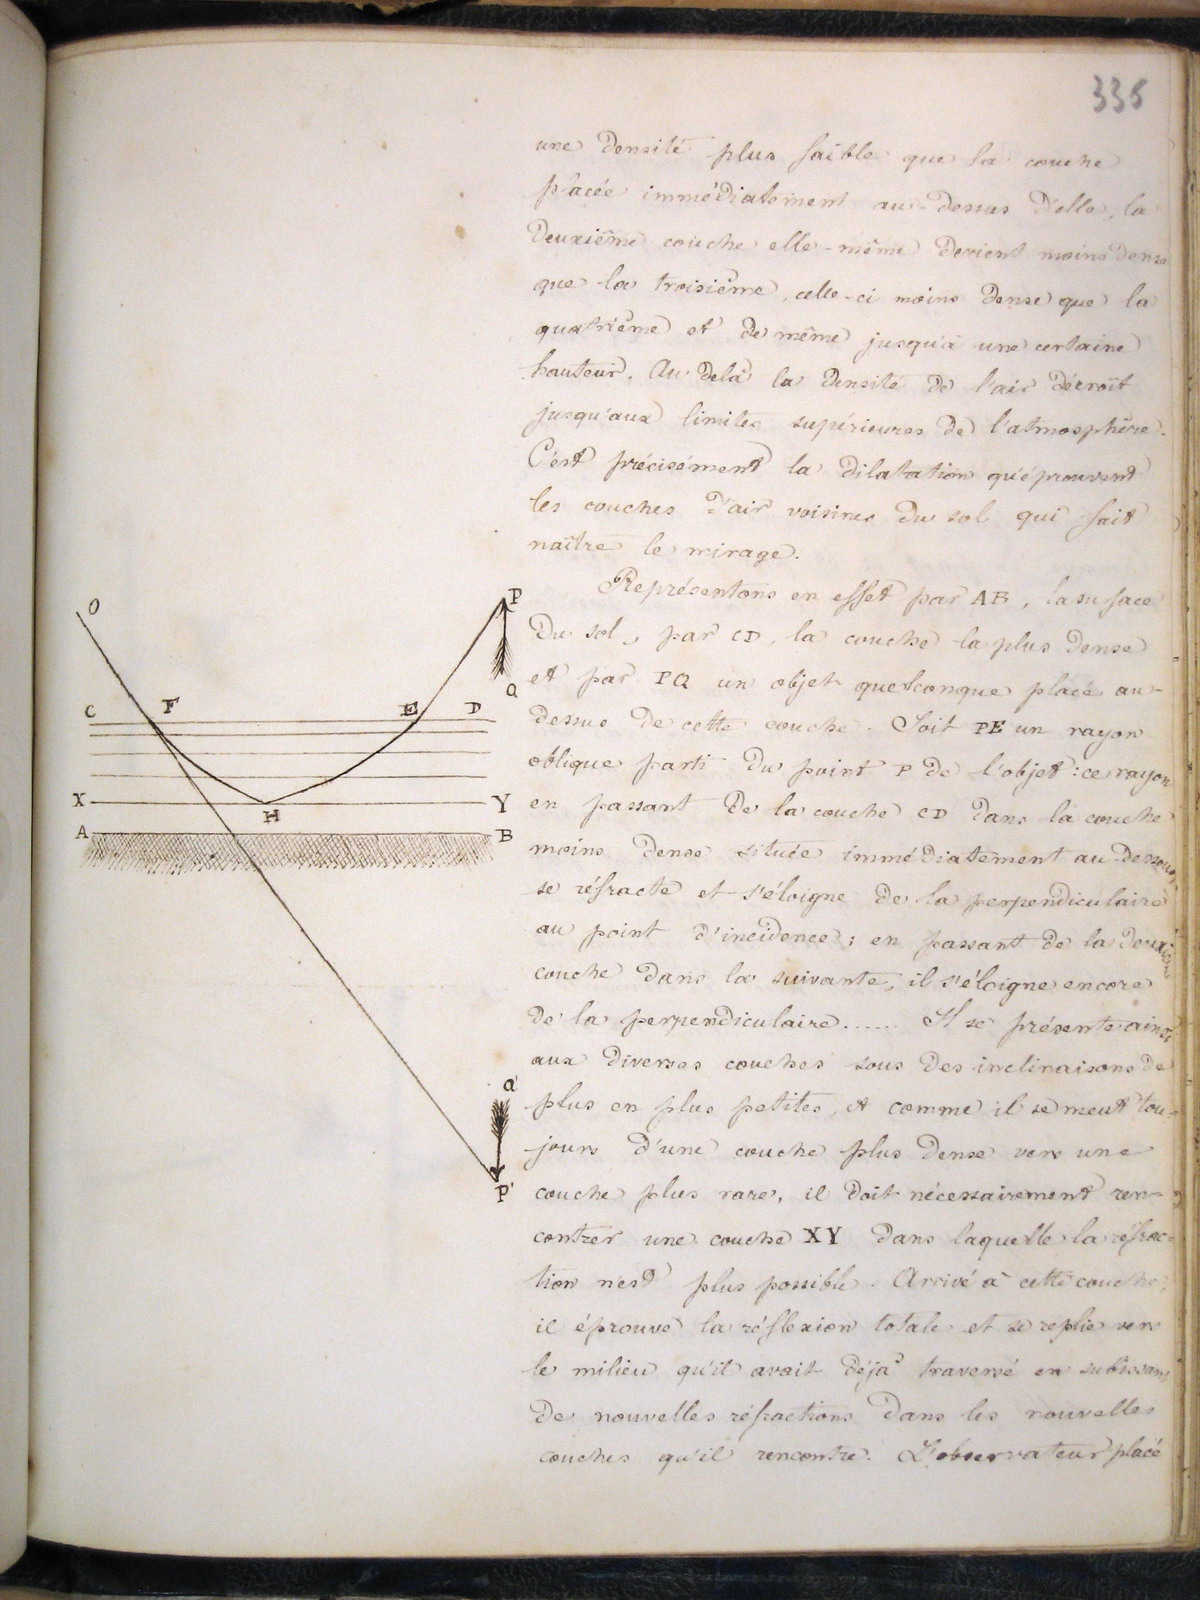 336
une densité plus faible que la couche
placée immédiatement au-dessus d'elle, la
deuxième couche elle-même devient moins dense
que la troisième, celle-ci moins dense que la
quatrième et de même jusqu'à une certaine
hauteur. Au delà la densité de l'air décroît
jusqu'aux limites supérieures de l'atmosphère.
C'est précisément la dilatation qu'éprouvent
les couches d'air voisines du sol qui fait
naître le mirage.
Représentons en effet par AB, la surface
du sol, par CD, la couche la plus dense
et par PQ un objet quelconque placé au-
dessus de cette couche. Soit PE un rayon
oblique parti du point P de l'objet : ce rayon
en passant de la couche CD dans la couche
moins dense située immédiatement au-dessous,
se réfracte et s'éloigne de la perpendiculaire
au point d'incidence ; en passant de la deuxième
couche dans la suivante, il s'éloigne encore
de la perpendiculaire...... Il se présente ainsi
aux diverses couches sous des inclinaisons de
plus en plus petites, et comme il se meut tou-
jours d'une couche plus dense vers une
couche plus rare, il doit nécessairement ren-
contrer une couche XY dans laquelle la réfrac-
tion n'est plus possible. Arrivé à cette couche,
il éprouve la réflexion totale et se replie vers
le milieu qu'il avait déjà traversé en subissant
de nouvelles réfractions dans les nouvelles
couches qu'il rencontre. L'observateur placé
O
P
Q
C
F
E
D
X
Y
H
A
B
Q'
P'